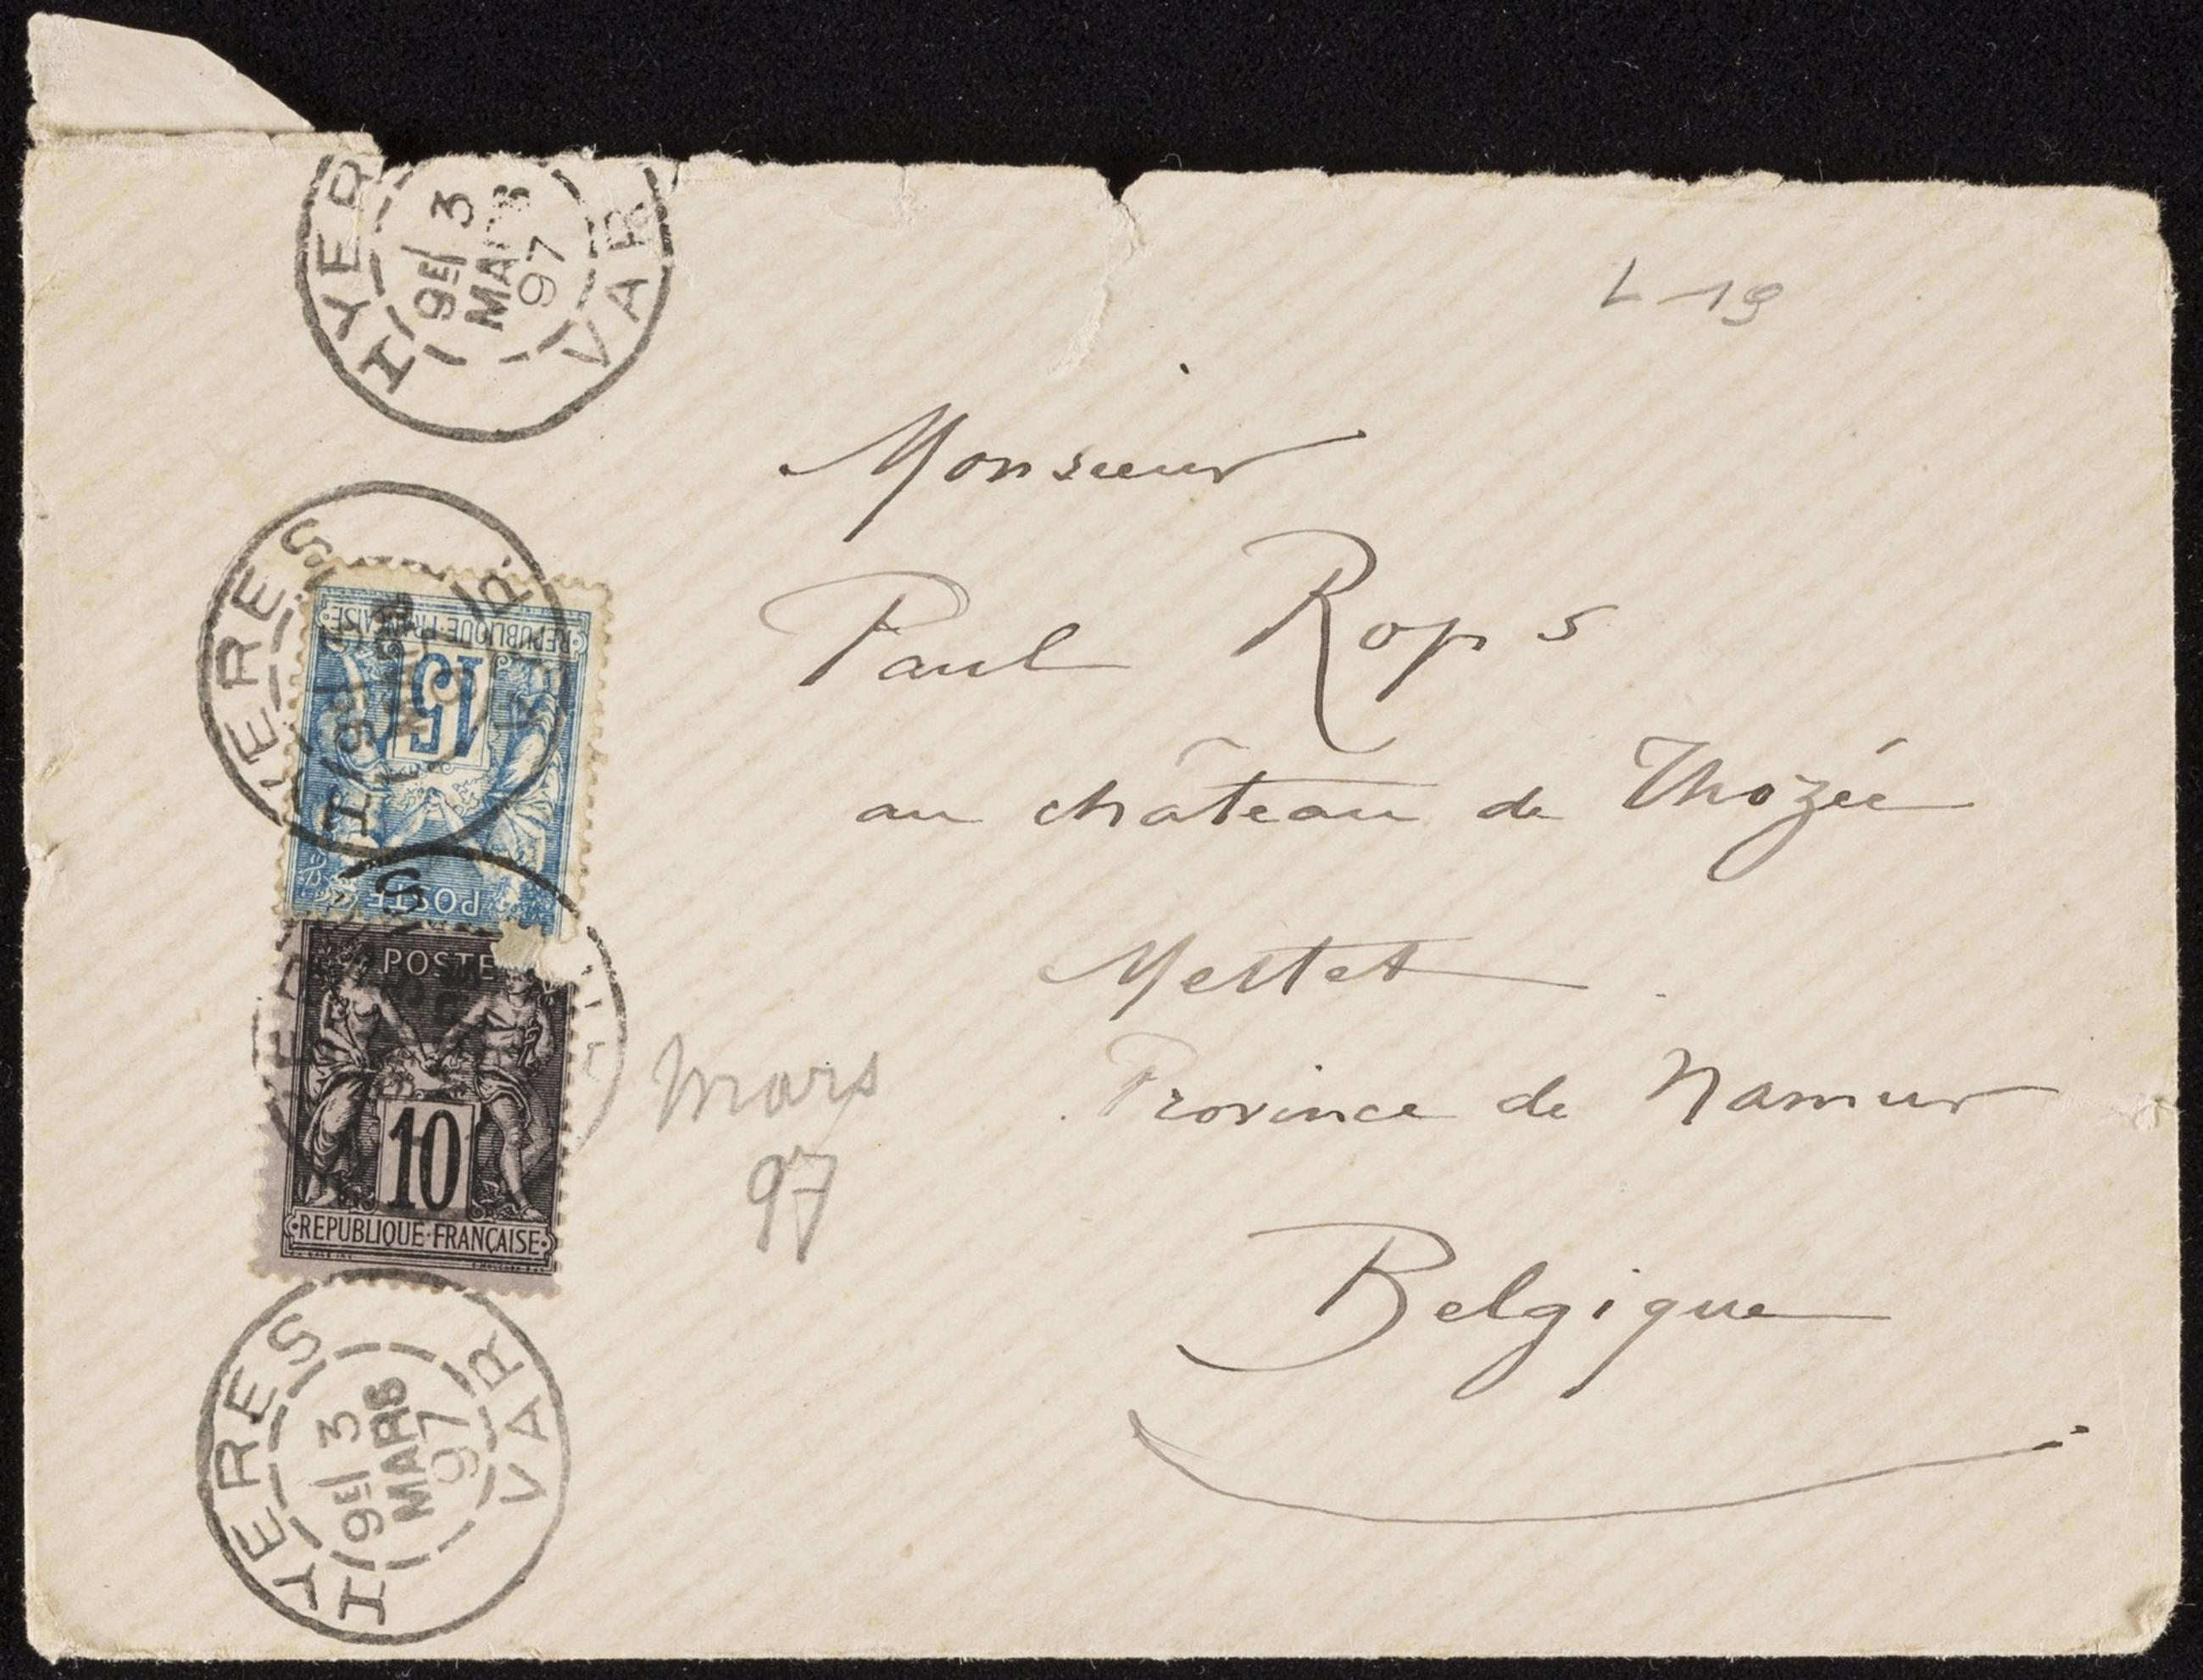 HYERES
VAR
9E/ 3
MARS
97
L-19
Monsieur
Paul Rops
au château de Thozée
Mettet
Province de Namur
Belgique
HYERES
9E
REPUBLIQUE FRANÇAISE
15
POSTE
POSTE
10
REPUBLIQUE FRANÇAISE
Mars
97
HYERES
VAR
9E/ 3
MARS
97